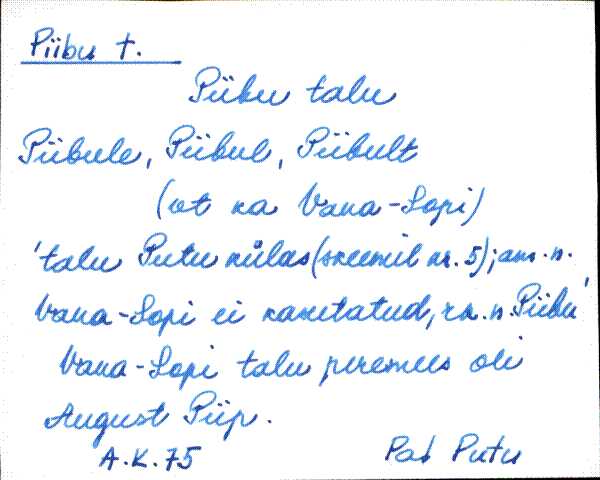 Piibu t.
Piibu talu
Piibule, Piibul, Piibult
(vt ka Vana-Sopi)
'talu Putu külas (skeemil nr. 5); am. n.
Vana-Sopi ei kasutatud, rn. n. Piibu'
Vana-Sopi talu peremees oli
August Piip.
A.K. 75 Pal Putu